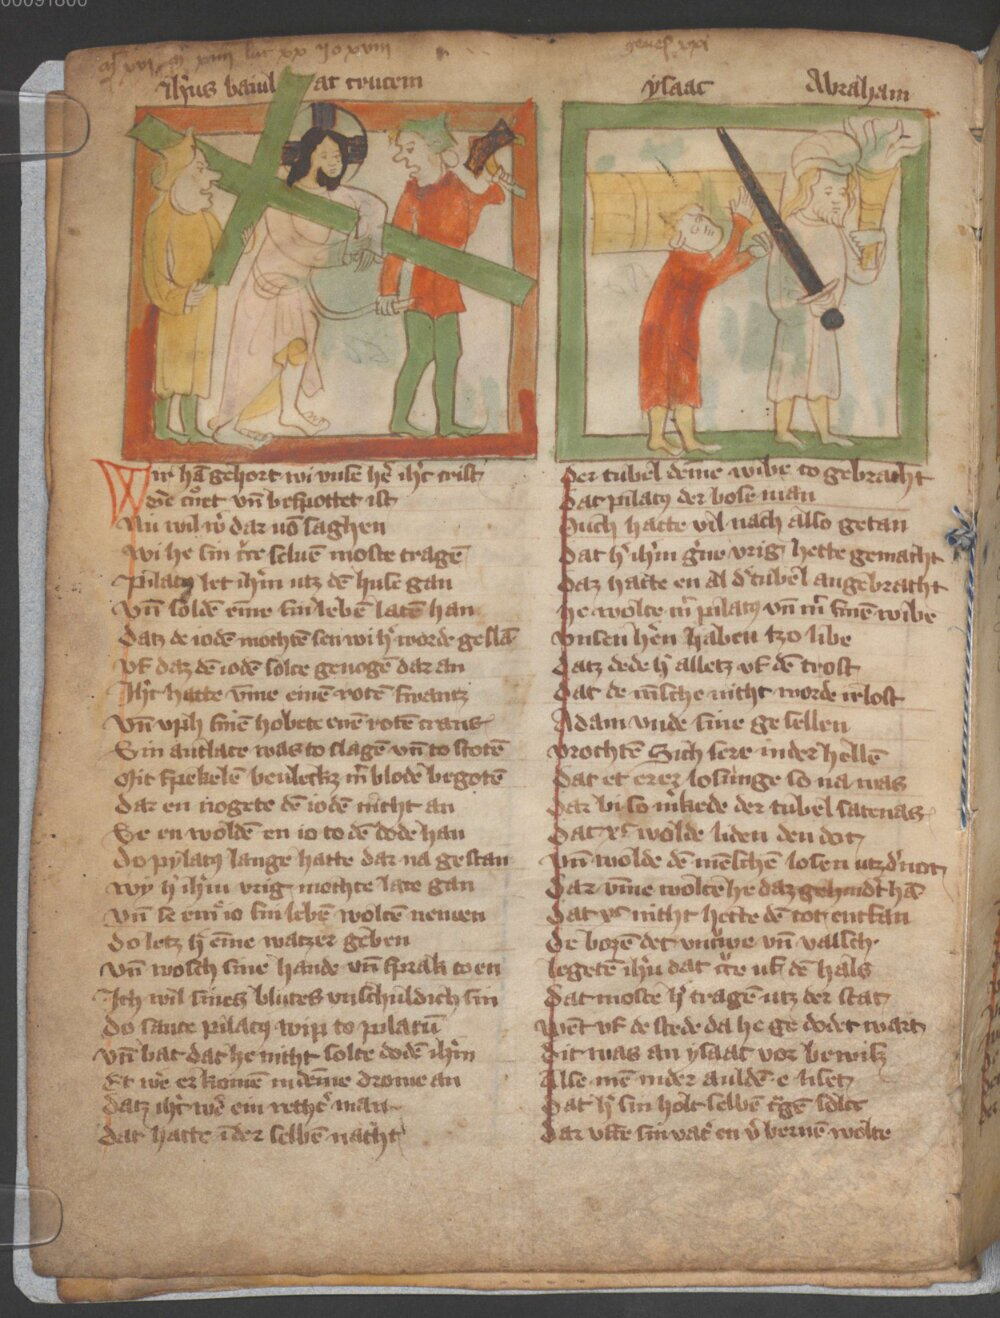 00091800
ih'us baiulat crucem
ysaac Abraham
Wir hā gehort wi vnse h'e ih'c crist
vn̄ bespottet ist
Nu wil w' dar vō saghen
Wi he sin c'ce seluē moste tragē
Pilat9 let ih'm utz dē huse gan
Vn̄ solde eme sin lebē latē han
Datz de iodē mochtē sen wi h' worde geslā
Vf daz dē iodē solte genogē dar an
Ih'c hatte vme einē rotē swantz
Vn̄ vph sinē hobete enē rotē crans
Sin antlatz was to slagē vn̄ to stotē
Mit spekelē beuleckz m̄ blode begotē
Dar en nogete dē iodē nicht an
Se en woldē en io to dē dode han
Do pylat9 lange hatte dar na gestan
Wy h' ih'm vrig mochte late gan
Vn̄ se em io sin lebē woltē nemen
Do letz h' eme watzer geben
Vn̄ wosch sine hande vn̄ sprak to en
Ich wil sines blutes vnschuldich sin
Do sante pilat9 wip to pilatū
Vn̄ bat dat he nicht solte dodē ih'm
Et we' er komē in deme drome an
Datz ih'c we' ein recht' man
Dat hatte in der selbē nacht
Der tubel deme wibe to gebracht
Dat pilat9 der bose man
Such hatte vil nach also getan
Dat h' ih'm g'ne vrig hette gemacht
Daz hatte en al d' tubel angebracht
He wolte m̄ pilat9 vn̄ m̄ sinē wibe
Vnsen h'en haben tzo libe
Datz dede h' alletz vf dē trost
Dat de mische nicht worde irlost
Adam vnde sine gesellen
Vrochtē sich sere in der hellē
Dat et erer losinge so na was
Dar bi so merkede der tubel satenas
Dat xc wolde liden den dot
Vn̄ wolde dē menschē losen utz d' not
Dar vme wolte he daz gehindt hā
Dat xc nicht hette dē tot entfan
De bozē det vnt'we vn̄ valsch
Legetē ih'u dat c'ce uf dē hals
Dat moste h' tragē utz der stat
Went vf de stede da he gedodet wart
Dit was an ysaac vor bewisz
Alse mē in der auldē e lisetz
Dat h' sin holt selbē t'gē solte
Dar vffe sin vat' en v'bernē wolte